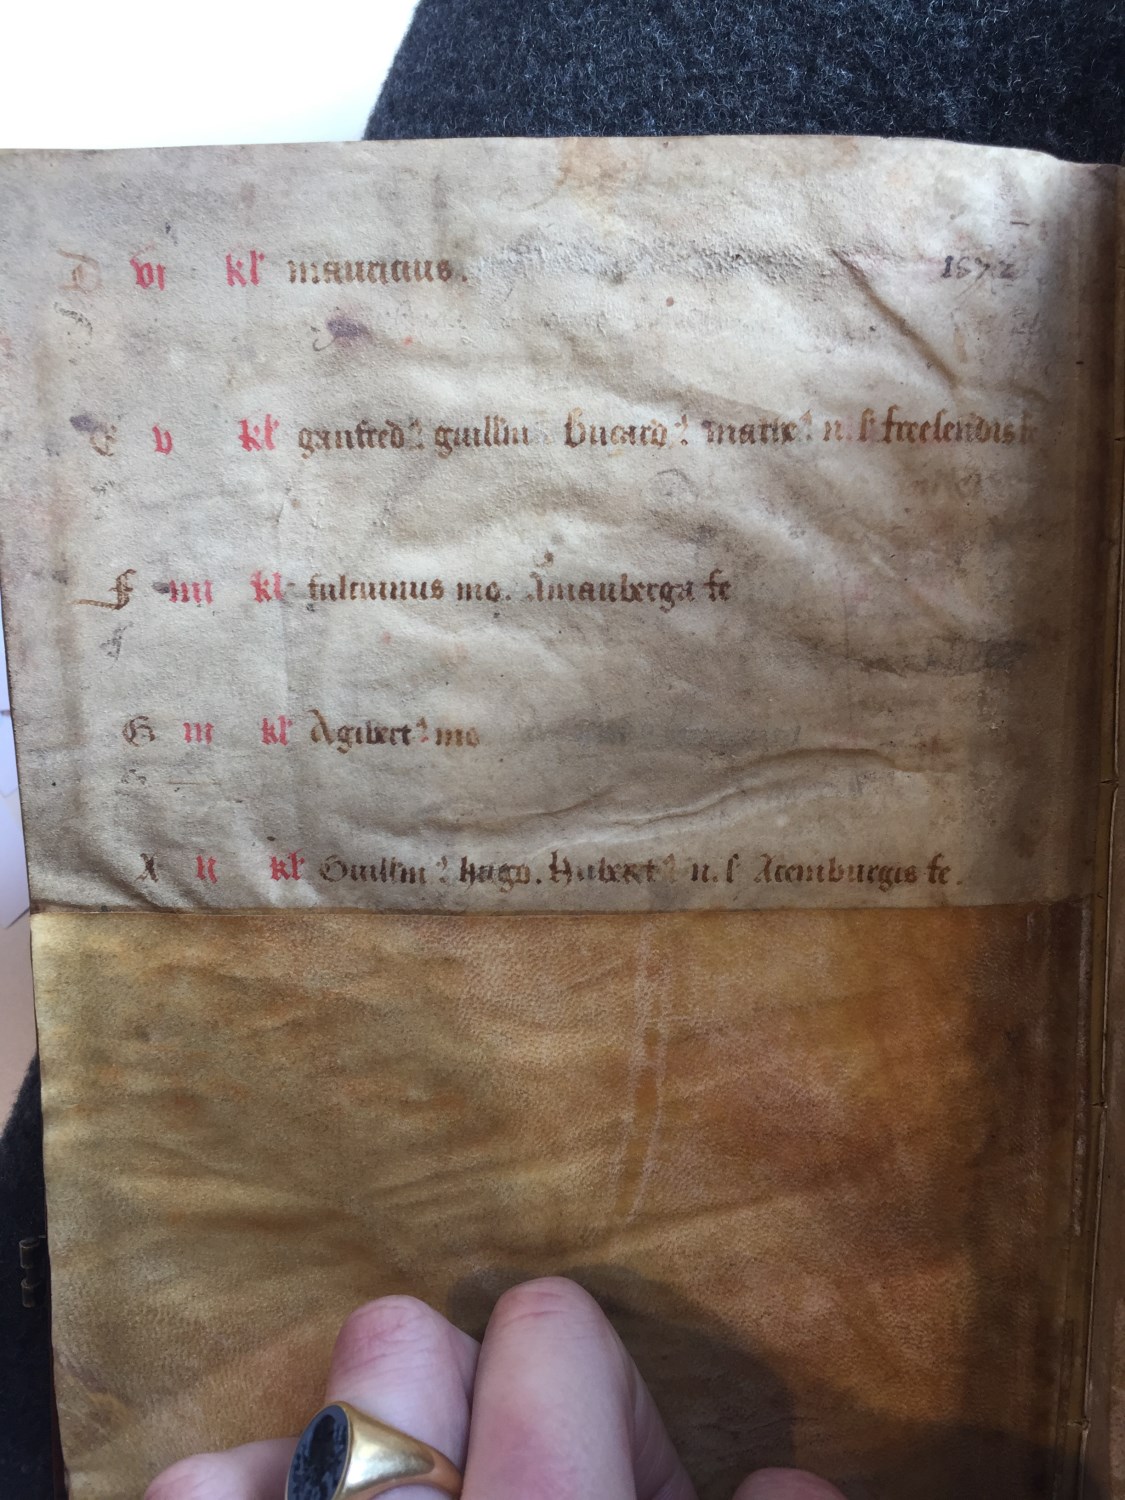 D vi kl' mauricius. 1572
E v kl' gaufred' guillm Huard' marie' n. s freelendis fe
F iiii kl' fulcuinus mo. Amauberga fe
G iii kl' Agibert' mo
A ii kl' Guillm' hugo. Hubert' n. s Aremburgis fe.